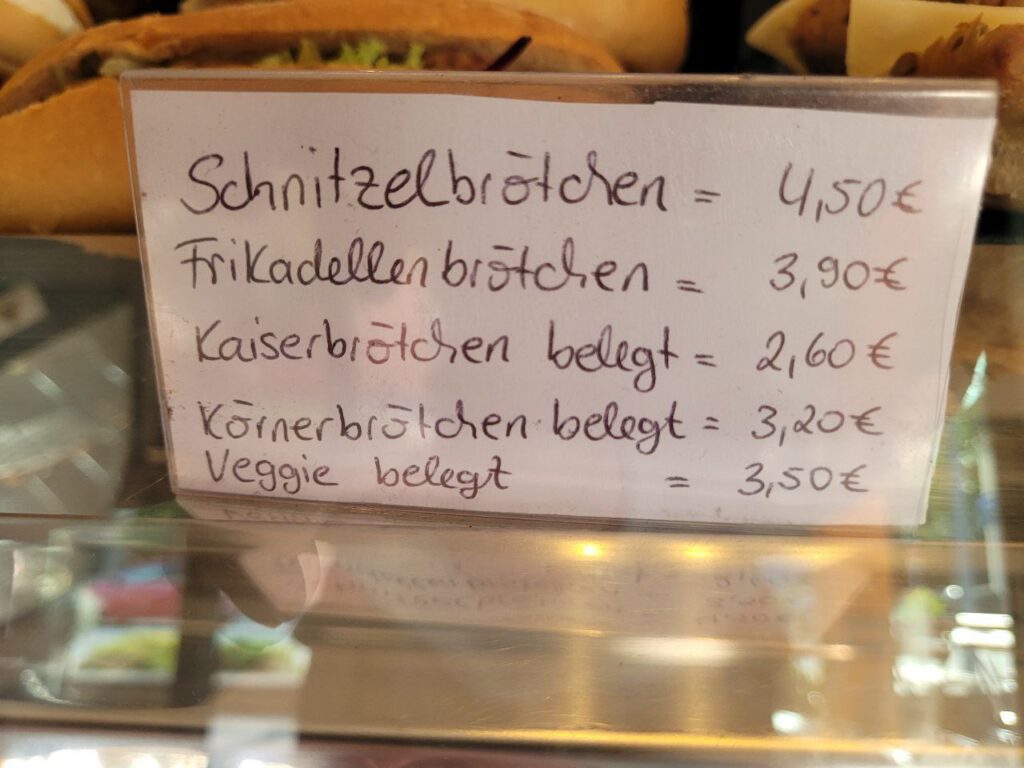 Schnitzelbrötchen = 4,50€
Frikadellenbrötchen = 3,90€
Kaiserbrötchen belegt = 2,60€
Körnerbrötchen belegt = 3,20€
Veggie belegt = 3,50€